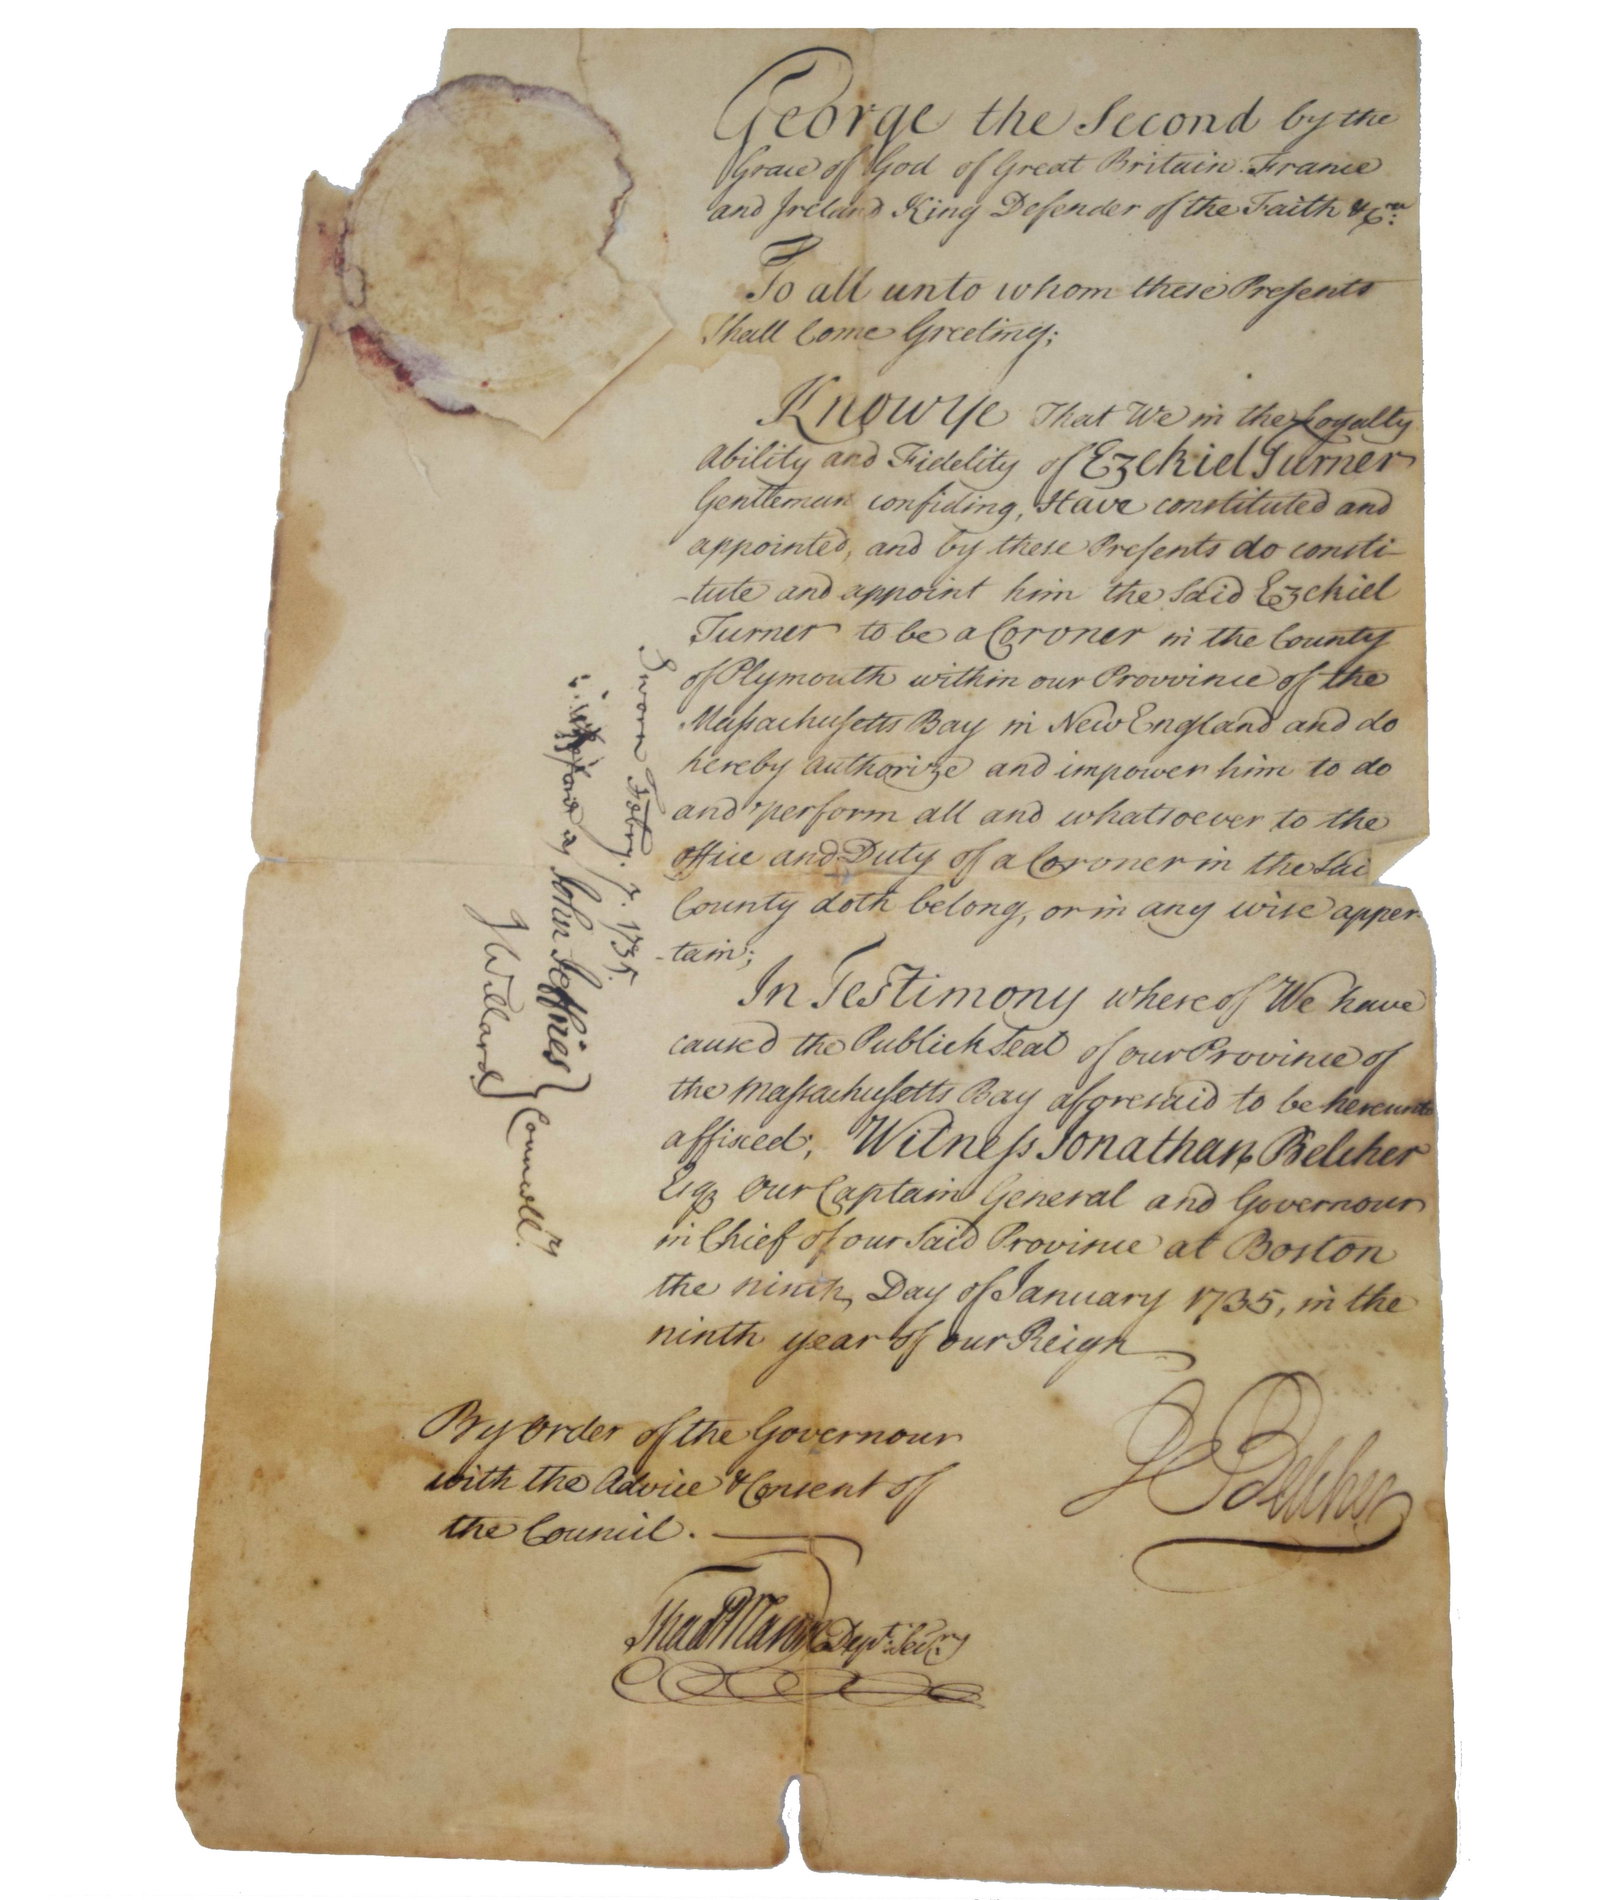 George the Second by the
Grace of God of Great Britain France
and Ireland King Defender of the Faith &Cra:
To all unto whom these Presents
Shall Come Greeting;
Know ye That We in the Loyalty
Ability and Fidelity of Ezekiel Turner
Gentleman confiding, Have constituted and
appointed, and by these Presents do consti-
-tute and appoint him the Said Ezekiel
Turner to be a Coroner in the County
of Plymouth within our Provvince of the
Massachusetts Bay in New England and do
hereby authorize and impower him to do
and perform all and whatsoever to the
office and Duty of a Coroner in the Sai
County doth belong, or in any wise apper-
-tain;
In Testimony whereof We have
caused the Publick Seal of our Province of
the Massachusetts Bay aforesaid to be hereunto
affixed; Witness Jonathan Belcher
Esqr Our Captain General and Governour
in Chief of our Said Province at Boston
the ninth Day of January 1735, in the
ninth year of our Reign
J Belcher
By Order of the Governour
with the Advice & Consent of
the Council.
Thad Mason Depty: Secry
Sworn Febry. 1735.
John Jeffries
J Willard